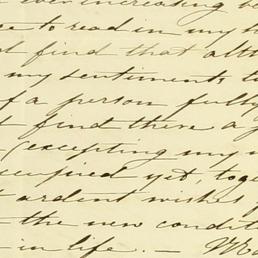 ever increasing be
to read in my h
find that alth
my sentiments t
f a person fully
find there a g
(excepting my
occupied yet, toge
t ardent wishes
the new condit
in life. —